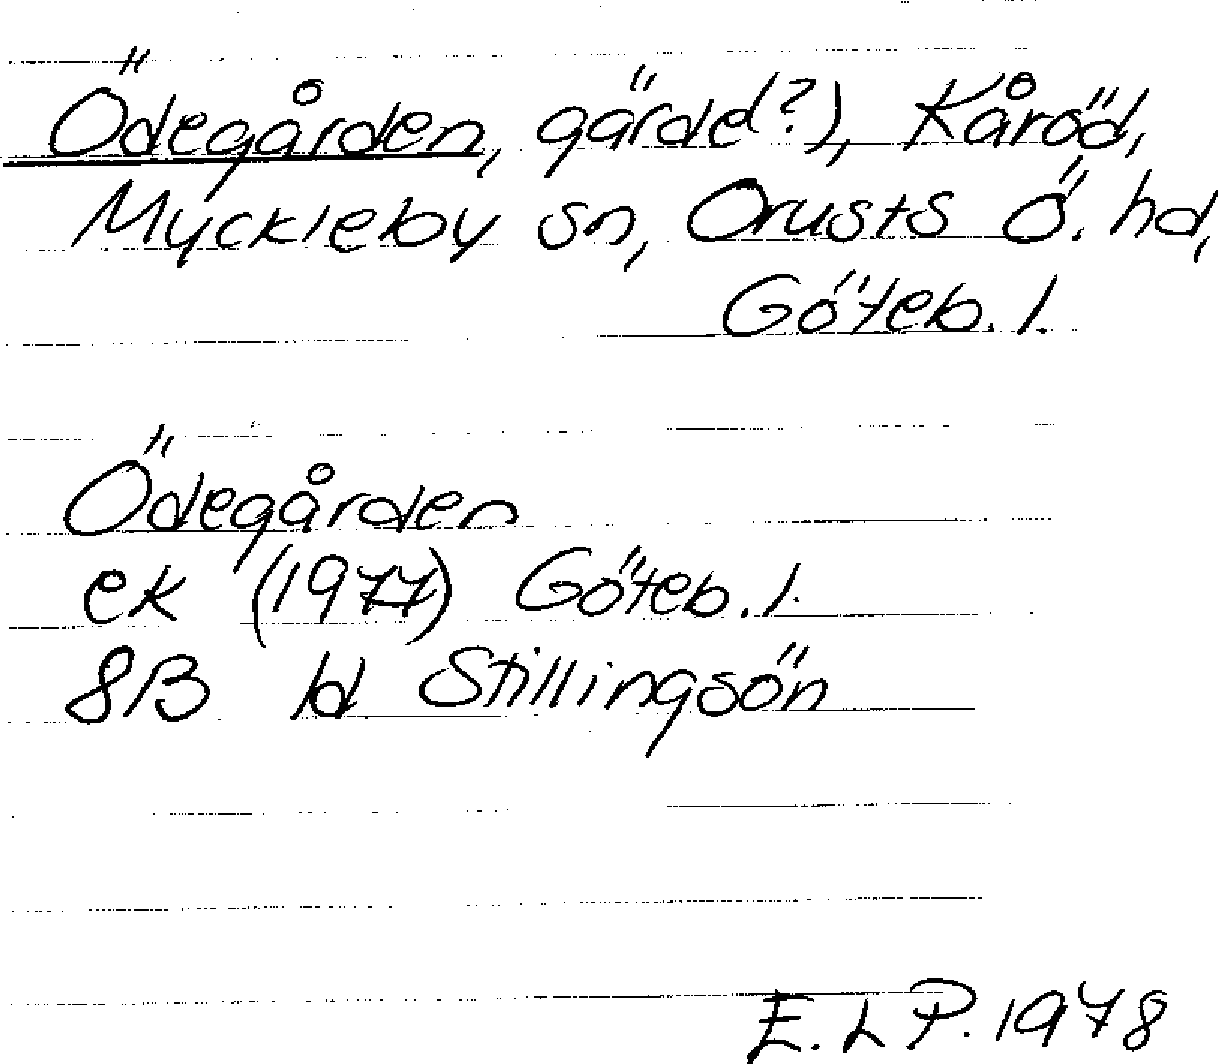 Ödegården, gärde(?), Kåröd,
Myckleby sn, Orusts Ö. hd,
Göteb. l.
Ödegården
ek (1977) Göteb. l.
8B 1d Stillingsön
E. L P. 1978